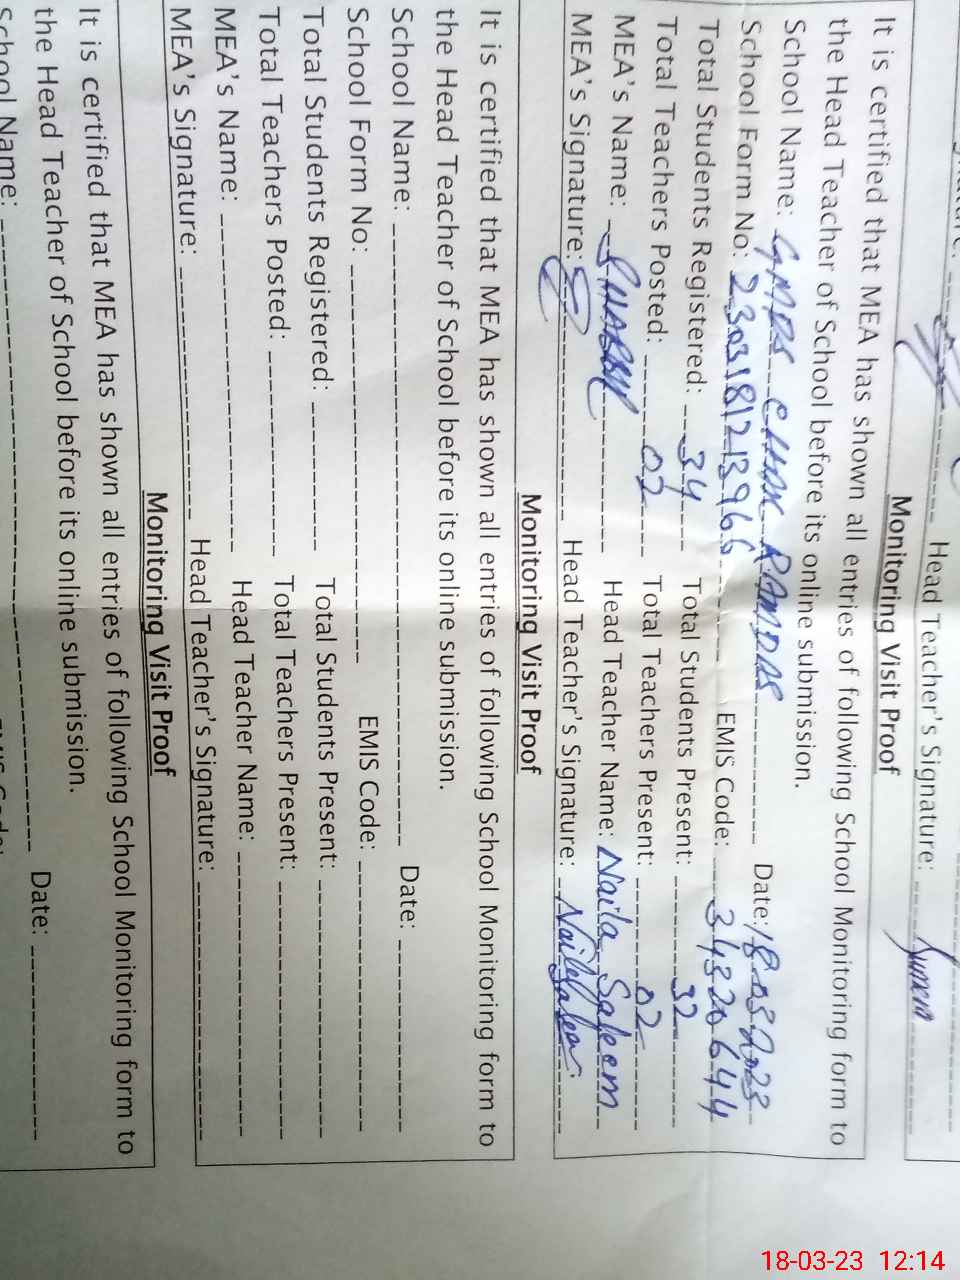 Head Teacher's Signature:
Monitoring Visit Proof
It is certified that MEA has shown all entries of following School Monitoring form to
the Head Teacher of School before its online submission.
School Name: GMPS CHAK RAMDAS Date: 18-03-2023
School Form No: 2303181213966 EMIS Code: 34320644
Total Students Registered: 34 Total Students Present: 32
Total Teachers Posted: 02 Total Teachers Present: 02
MEA's Name: Head Teacher Name: Naila Saleem
MEA's Signature: Head Teacher's Signature: Naila Saleem
Monitoring Visit Proof
It is certified that MEA has shown all entries of following School Monitoring form to
the Head Teacher of School before its online submission.
School Name: Date:
School Form No: EMIS Code:
Total Students Registered: Total Students Present:
Total Teachers Posted: Total Teachers Present:
MEA's Name: Head Teacher Name:
MEA's Signature: Head Teacher's Signature:
Monitoring Visit Proof
It is certified that MEA has shown all entries of following School Monitoring form to
the Head Teacher of School before its online submission.
School Name: Date:
18-03-23 12:14